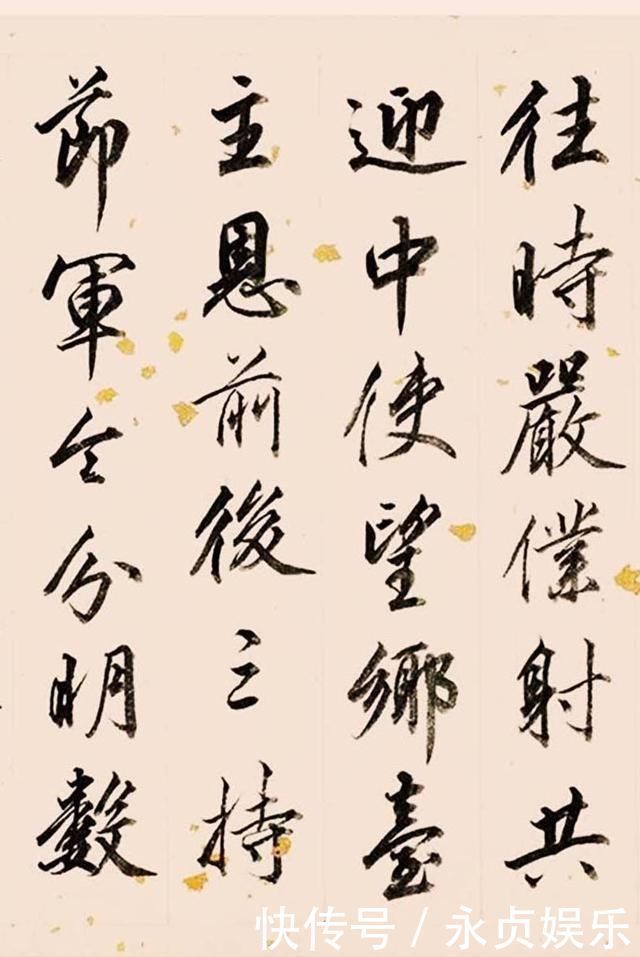 往時嚴僕射共
迎中使望鄉臺
主恩前後三持
節軍令分明數
快传号/永贞娱乐